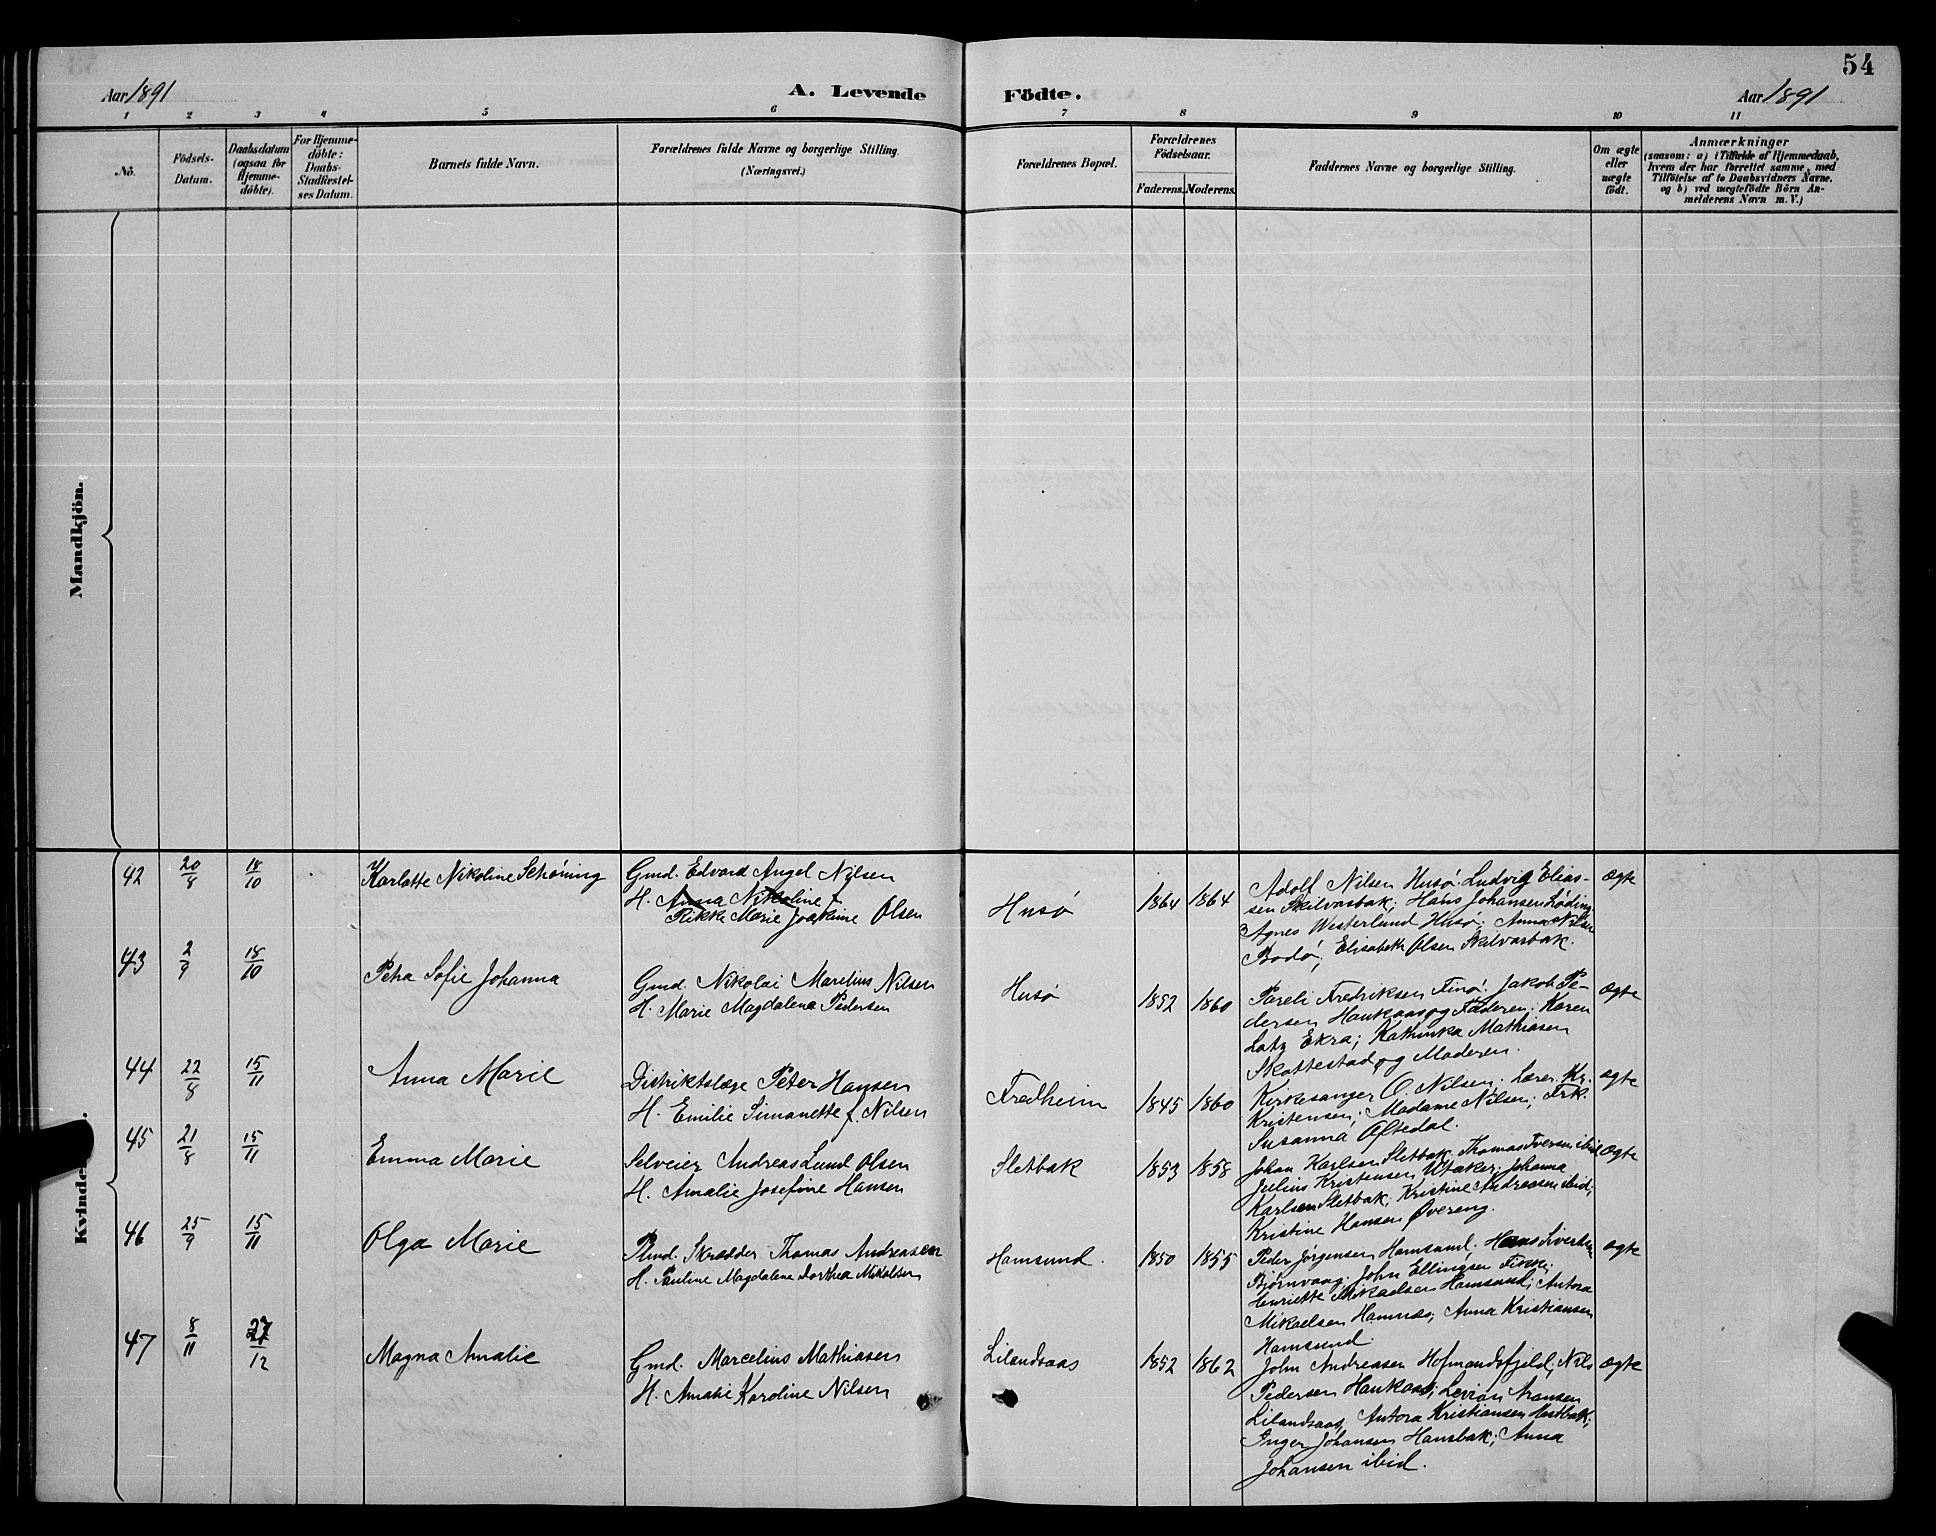 54
Aar 1891
A. Levende
Födte.
Aar 1891
1 2 3 4 5 6 7 8 9 10 11
No.
Födsels-
Datum.
Daabsdatum
(ogsaa for
Hjemme-
döbte).
For Hjemme-
döbte:
Daabs-
Stadfæstel-
ses Datum.
Barnets fulde Navn.
Forældrenes fulde Navne og borgerlige Stilling.
(Næringsvei.)
Forældrenes Bopæl.
Forældrenes
Födselsaar.
Faderens. Moderens.
Faddernes Navne og borgerlige Stilling.
Om ægte
eller
uægte
födt.
Anmærkninger
(saasom: a) i Tilfælde af Hjemmedaab,
hvem der har forrettet samme, med
Tilföielse af to Daabsvidners Navne.
og b) ved uægtefödte Börn An-
melderens Navn m. V.)
Mandkjön.
Kvinde
42 20/8 18/10 Karlotte Nikoline Schøning
Gmd. Edvard Angel Nilsen
H. Anna Nikoline f.
Rikke Marie Joakime Olsen
Husø 1864 1864
Adolf Nilsen Husø. Ludvig Elias-
sen Skilvasbak; Hans Johansen Løding
Agnes Westerlund Husø; Anna Nilsen
Bodø; Elisabeth Olsen Skilvasbak.
ægte
43 2/9 18/10 Petra Sofie Johanna
Gmd. Nikolai Marelius Nilsen
H. Marie Magdalena Pedersen
Husø 1852 1860
Pareli Fredriksen Finø. Jakob Pe-
dersen Haukaas og Faderen; Karen
Lotz Ekra; Kathinka Mathiasen
Skottestad og Moderen.
ægte
44 22/8 15/11 Anna Marie
Distriktslæge Peter Hansen
H. Emilie Simonette f. Nilsen
Fredheim 1845 1860
Kirkesanger O. Nilsen. Lærer Kr.
Kristensen; Madame Nilsen; Frk.
Susanna Oftedal.
ægte
45 21/8 15/11 Emma Marie
Selveier Andreas Lund Olsen
H. Amalie Josefine Hansen
Sletbak 1853 1858
Johan Karlsen Sletbak, Thomas Iversen ibid
Julius Kristensen Utaker; Johanna
Karlsen Sletbak; Kristine Andreasen ibid;
Kristine Hansen Øvereng.
ægte
46 25/9 15/11 Olga Marie
Plmd. Skrædder Thomas Andreasen
H. Pauline Magdalene Dorthea Mikalsen
Hamsund. 1850 1855
Peder Jørgensen Hamsund; Hans Sivertsen
Bjørnvaag; John Ellingsen Finø;
Henriette Mikaelsen Hamsund; Antora
Mikaelsen Hamnæs; Anna Kristiansen
Hamsund.
ægte
47 8/11 27/12 Magna Amalie
Gmd. Marcelius Mathiasen
H. Amalie Karoline Nilsen
Lilandsaas 1852 1862
John Andreasen Hofmandsfjeld; Nils
Pedersen Haukaas; Levion Aronsen
Lilandsaas; Antora Kristiansen Hestbak;
Inger Johansen Hansbak; Anna
Johansen ibid.
ægte